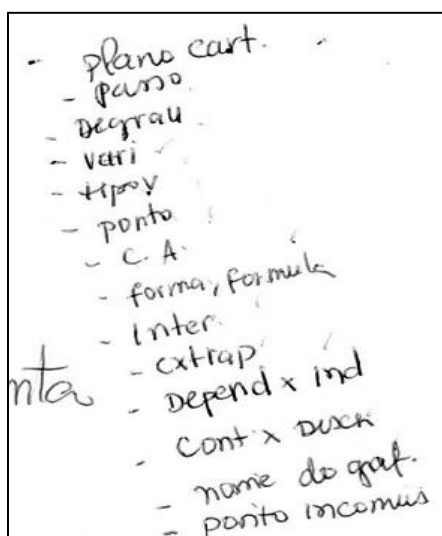 - plano cart.
- passo
- Degrau
- vari
- tipo y
- ponto
- C. A.
- forma, formula
- Inter.
- extrap
nta
- Depend x ind
- Cont x Discr
- nome do graf.
- ponto incomuis